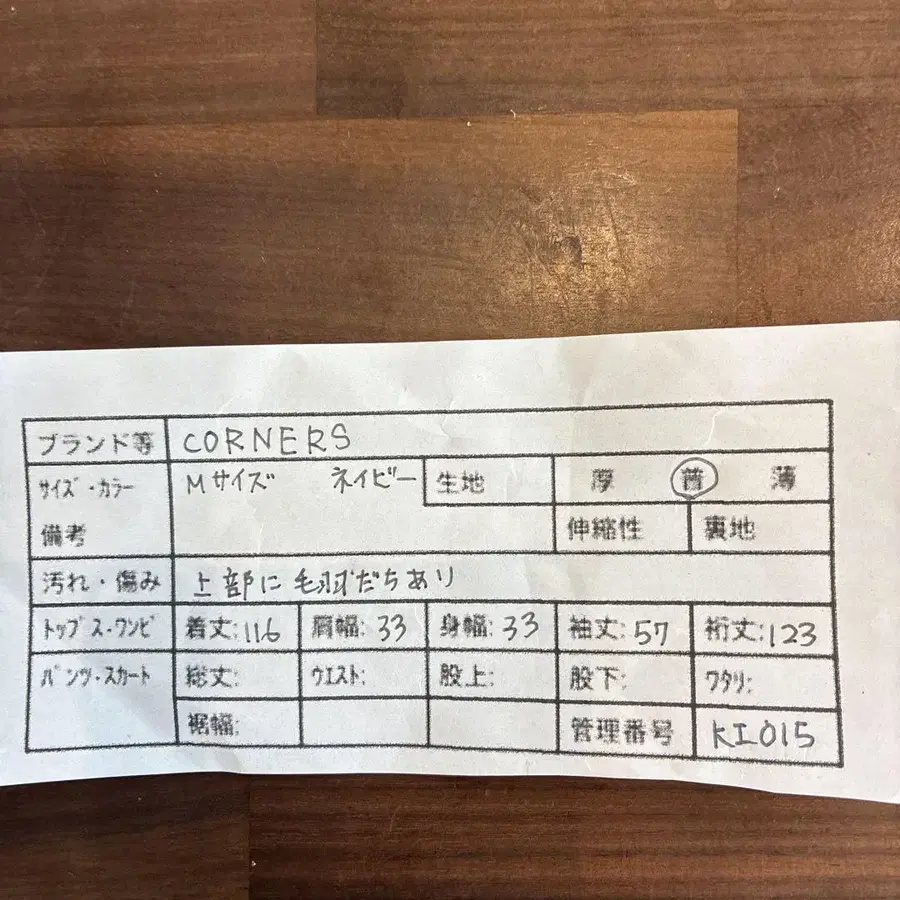 ブランド等 CORNERS
サイズ・カラー Mサイズ ネイビー 生地 厚 普 薄
備考 伸縮性 裏地
汚れ・傷み 上部に毛羽だちあり
トップス・ワンピ 着丈:116 肩幅:33 身幅:33 袖丈:57 裄丈:123
パンツ・スカート 総丈: ウエスト: 股上: 股下: ワタリ:
裾幅: 管理番号 KI015